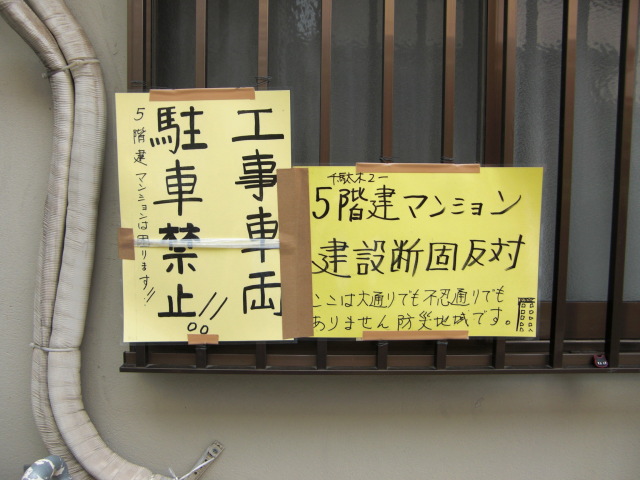 工事車両
駐車禁止!!
5階建マンションは困ります!!
千駄木2-
5階建マンション
建設断固反対
ここは大通りでも不忍通りでも
ありません防災地域です。